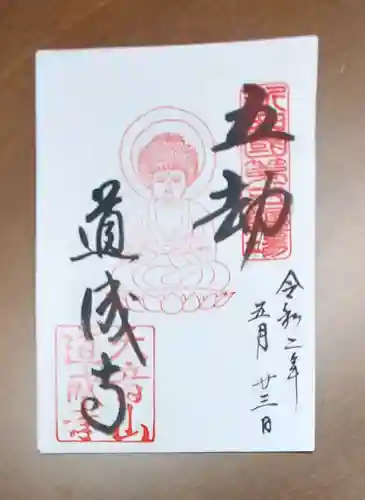 五劫
道成寺
令和二年
五月廿三日
天音山
道成寺